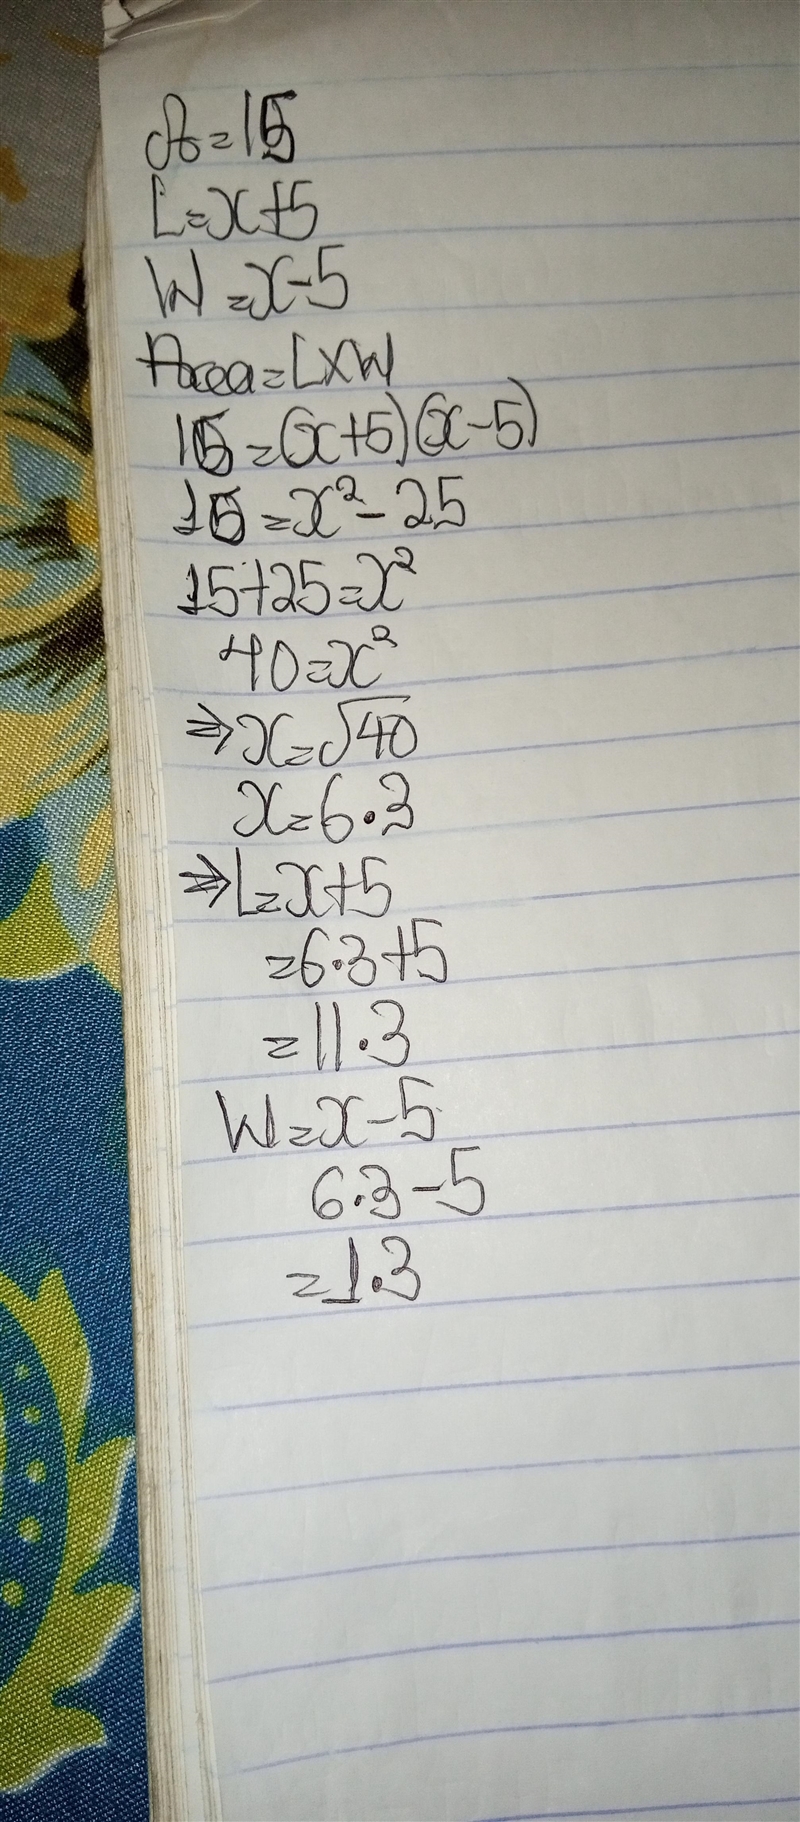 A=15
L=x+5
W=x-5
Area=L×W
15=(x+5)(x-5)
15=x²-25
15+25=x²
40=x²
⇒x=√40
x=6·3
⇒L=x+5
=6·3+5
=11·3
W=x-5
6·3-5
=1·3